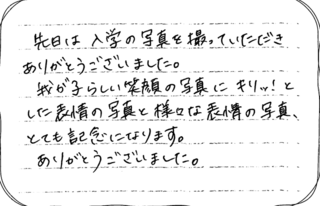 先日は入学の写真を撮っていただき
ありがとうございました。
我が子らしい笑顔の写真にキリッ!と
した表情の写真と様々な表情の写真、
とても記念になります。
ありがとうございました。